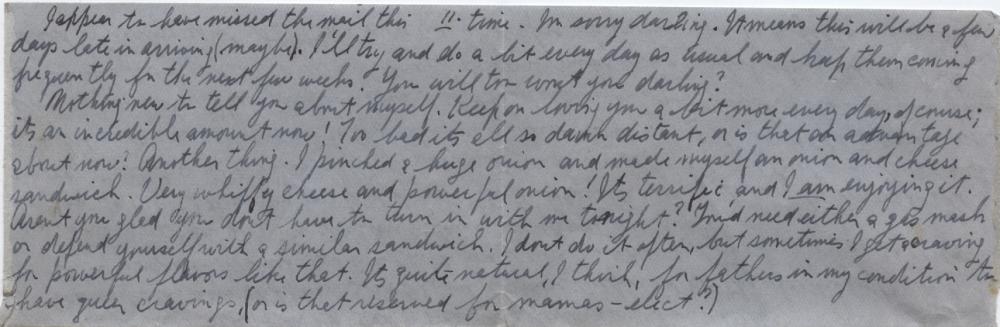 I appear to have missed the mail this time. I'm sorry darling. It means this will be a few
days late in arriving (maybe). I'll try and do a bit every day as usual and keep them coming
frequently for the next few weeks. You will too won't you darling?
Nothing new to tell you about myself. Keep on loving you a bit more every day, of course;
its an incredible amount now! Too bad its all so damn distant, or is that an advantage
about now? Another thing. I pinched a huge onion and made myself an onion and cheese
sandwich. Very whiffy cheese and powerful onion! Its terrific and I am enjoying it.
Aren't you glad you don't have to turn in with me tonight? You'd need either a gas mask
or defend yourself with a similar sandwich. I dont do it often, but sometimes I get a craving
for powerful flavors like that. Its quite natural, I think, for fathers in my condition to
have queer cravings, (or is that reserved for mamas-elect?)